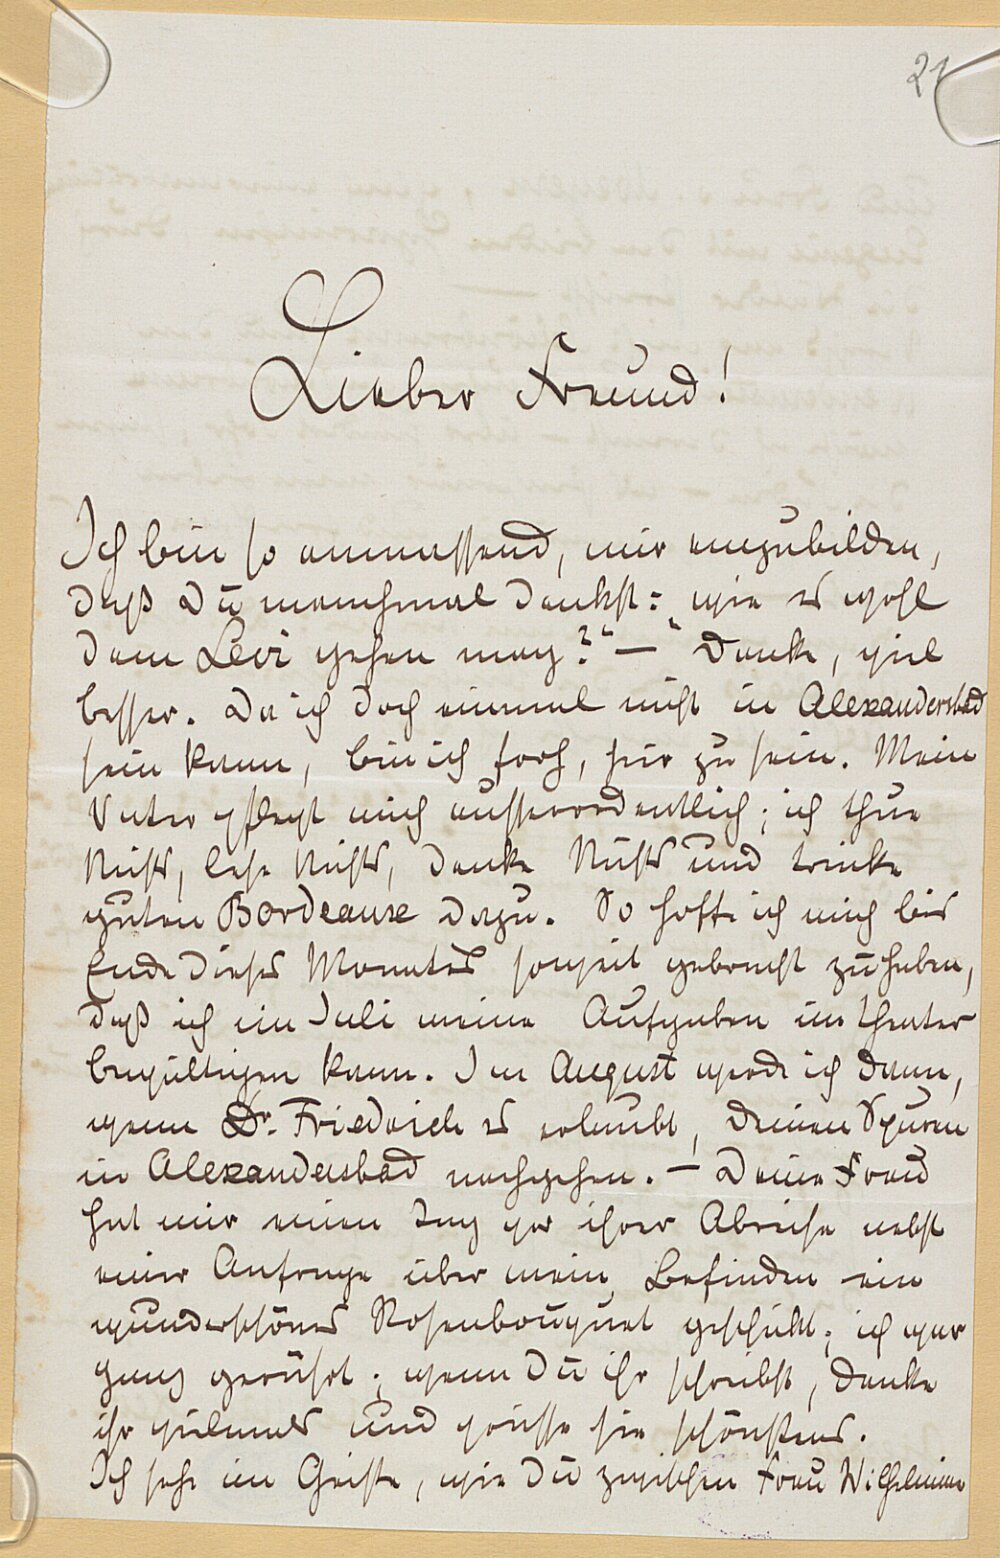 21
Lieber Freund!
Ich bin so anmassend, mir einzubilden,
daß Du manchmal denkst: „wie es wohl
dem Levi gehen mag?“ — Danke, viel
besser. Da ich doch einmal nicht in Alexandersbad
sein kann, bin ich froh, hier zu sein. Mein
Vater pflegt mich ausserordentlich; ich thue
Nichts, lese Nichts, denke Nichts und trinke
guten Bordeaux dazu. So hoffe ich mich bis
Ende dieses Monates soweit gebracht zu haben,
daß ich im Juli meine Aufgaben im Theater
bewältigen kann. Im August werde ich dann,
wenn Dr. Friedrich es erlaubt, Deinen Spuren
in Alexandersbad nachgehen. — Deine Frau
hat mir einen Tag vor ihrer Abreise nebst
einer Anfrage über mein Befinden ein
wunderschönes Rosenbouquet geschickt; ich war
ganz gerührt; wenn Du ihr schreibst, danke
ihr vielmals und grüsse sie schönstens.
Ich sehe im Geiste, wie Du zwischen Frau Wilhelmine